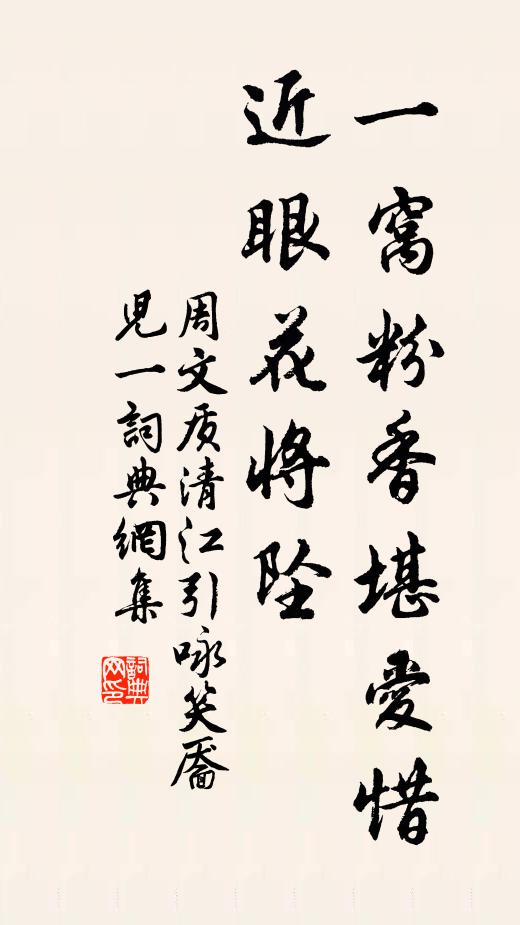 一窩粉香堪愛惜
近眼花將坠
周文质清江引咏笑靨
兒一詞典網集
詞典网印